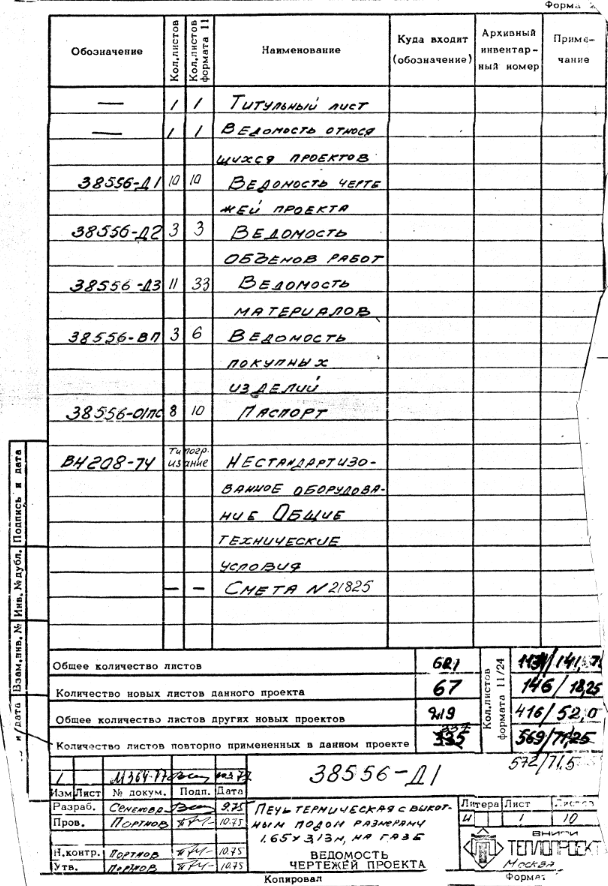 Форма
Обозначение
Кол.листов
Кол.листов формата 11
Наименование
Куда входит (обозначение)
Архивный инвентар-ный номер
Приме-чание
— 1 1 Титульный лист
— 1 1 Ведомость относя
щихся проектов
38556-Д1 10 10 Ведомость черте
жей проекта
38556-Д2 3 3 Ведомость
объемов работ
38556-Д3 11 33 Ведомость
материалов
38556-ВП 3 6 Ведомость
покупных
изделий
38556-01ПС 8 10 Паспорт
ВН208-74 Типогр. издание Нестандартизо-
ванное оборудова-
ние Общие
технические
условия
— — Смета N 21825
Инв. № дубл. Подпись и дата
Взам.инв. №
и дата
Общее количество листов 621
Количество новых листов данного проекта 67 146/18,25
Общее количество листов других новых проектов 219 416/52,0
Количество листов повторно примененных в данном проекте 335 569/71,25
Кол.листов формата 11/24
572/71,5
38556-Д1
1
Изм Лист № докум. Подп. Дата
Разраб. 9.75
Пров. Портнов 10.75
Н.контр. Портнов 10.75
Утв. Портнов 10.75
Печь термическая с выкат-
ным подом размерами
1.65×3,13м, на газе
ВЕДОМОСТЬ
ЧЕРТЕЖЕЙ ПРОЕКТА
Литера Лист Листов
И 1 10
ВНИПИ
ТЕПЛОПРОЕКТ
Москва
Копировал
Формат